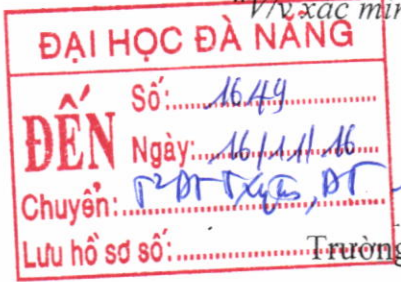 "V/v xác min
ĐẠI HỌC ĐÀ NẴNG
ĐẾN
Số: 1649
Ngày: 16/11/16
Chuyển: ĐT
Lưu hồ sơ số:
Trường